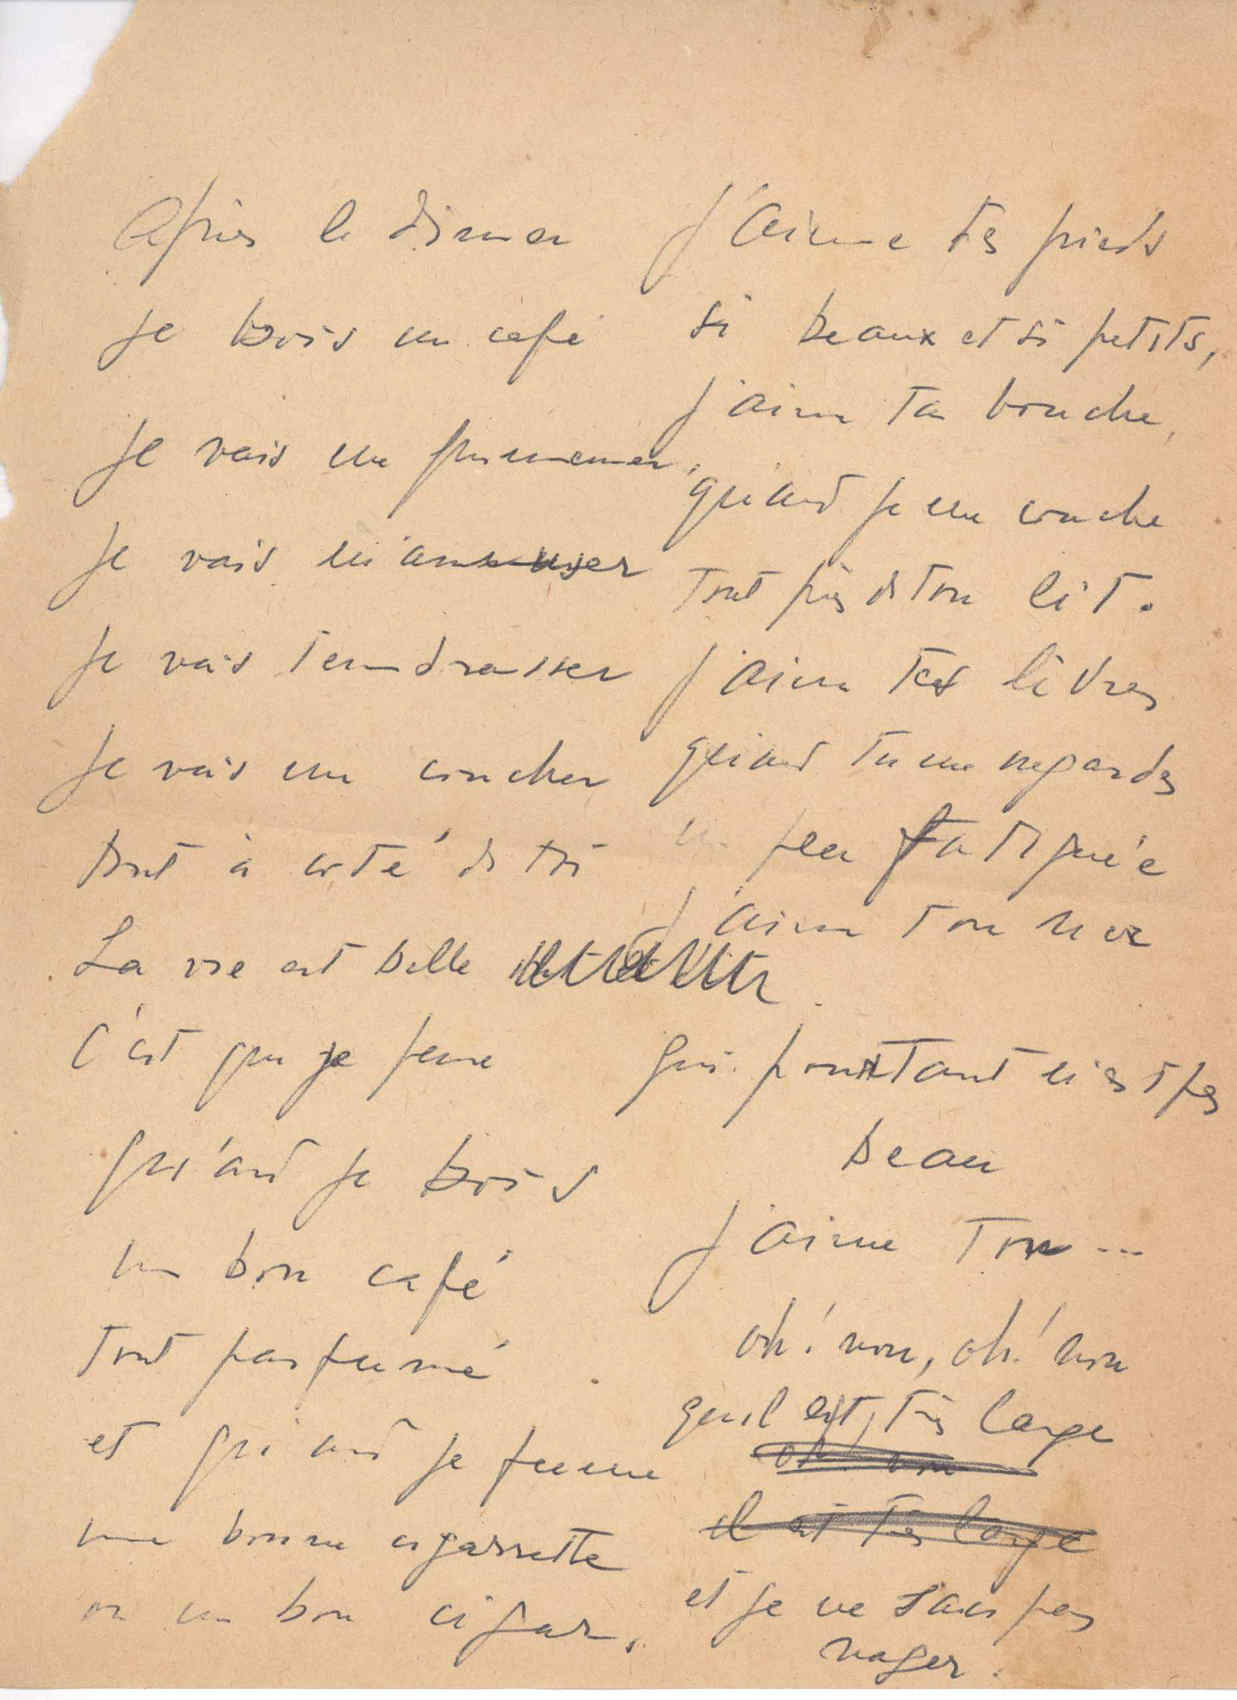 Après le dîner
je bois un café
je vais me promener,
je vais m'amuser
je vais t'embrasser
je vais me coucher
tout à coté de toi
La vie est belle
c'est que je pense
quand je bois
un bon café
tout parfumé
et quand je fume
une bonne cigarrette
ou un bon cigar,
J'aime tes pieds
si beaux et si petits,
j'aime ta bouche,
quand je me couche
tout près de ton lit.
j'aime tes lèvres
quand tu me regardes
un peu fatiguée
j'aime ton nez
qui pourtant n'est pas
beau
j'aime ton ...
oh! non, oh! non
qu'il est, très large
oh non
il est très large
et je ne sais pas
nager.